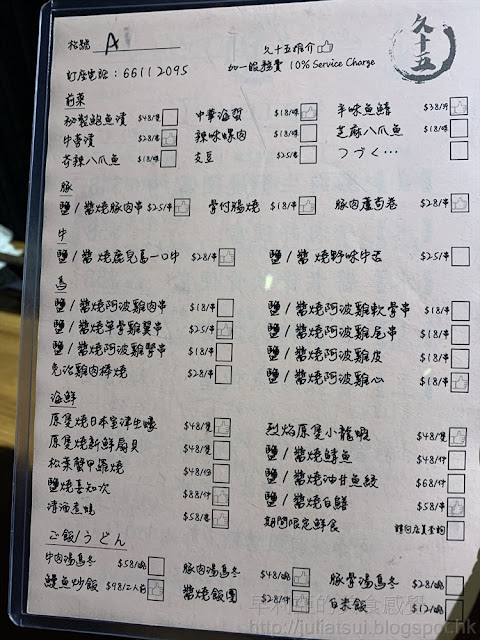 枱號 A
久十五推介
久十五
訂座電話：66112095 加一服務費 10% Service Charge
前菜
秘製鮑魚漬 $48/隻 中華海蜇 $18/碟 辛味魚鰭 $38/碟
牛蒡漬 $28/碟 辣味螺肉 $18/碟 芝麻八爪魚 $18/碟
芥辣八爪魚 $18/碟 枝豆 $25/碟 つづく…
豚
鹽 / 醬燒豚肉串 $25/串 骨付腸燒 $18/串 豚肉蘆筍卷 $28/串
牛
鹽 / 醬燒鹿兒島一口牛 $28/串 鹽 / 醬燒野味牛舌 $25/串
鳥
鹽 / 醬燒阿波雞肉串 $18/串 鹽 / 醬燒阿波雞軟骨串 $18/串
鹽 / 醬燒單骨雞翼串 $25/串 鹽 / 醬燒阿波雞尾串 $18/串
鹽 / 醬燒阿波雞腎串 $18/串 鹽 / 醬燒阿波雞皮 $18/串
免治雞肉棒燒 $28/串 鹽 / 醬燒阿波雞心 $18/串
海鮮
原隻燒日本室津生蠔 $48/隻 烈焰原隻小龍蝦 $48/隻
原隻燒新鮮扇貝 $48/隻 鹽 / 醬燒鱘魚 $48/串
松葉蟹甲羅燒 $48/份 鹽 / 醬燒油甘魚鮫 $68/件
鹽燒喜知次 $88/件 鹽 / 醬燒白鱔 $58/串
清酒煮蜆 $58/煲 期間限定鮮食 請向店員查詢
ご飯/うどん
牛肉湯烏冬 $58/碗 豚肉湯烏冬 $48/碗 豚骨湯烏冬 $28/碗
鰻魚炒飯 $98/二人前 醬燒飯團 $28/件 白米飯 $12/碗
http://juliatsui.blogspot.hk